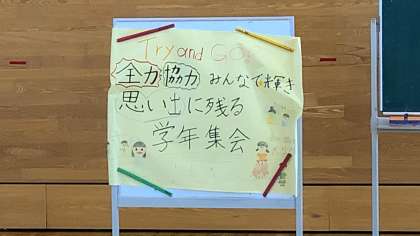 Try and GO!
全力 協力 みんなで輝き
思い出に残る
学年集会